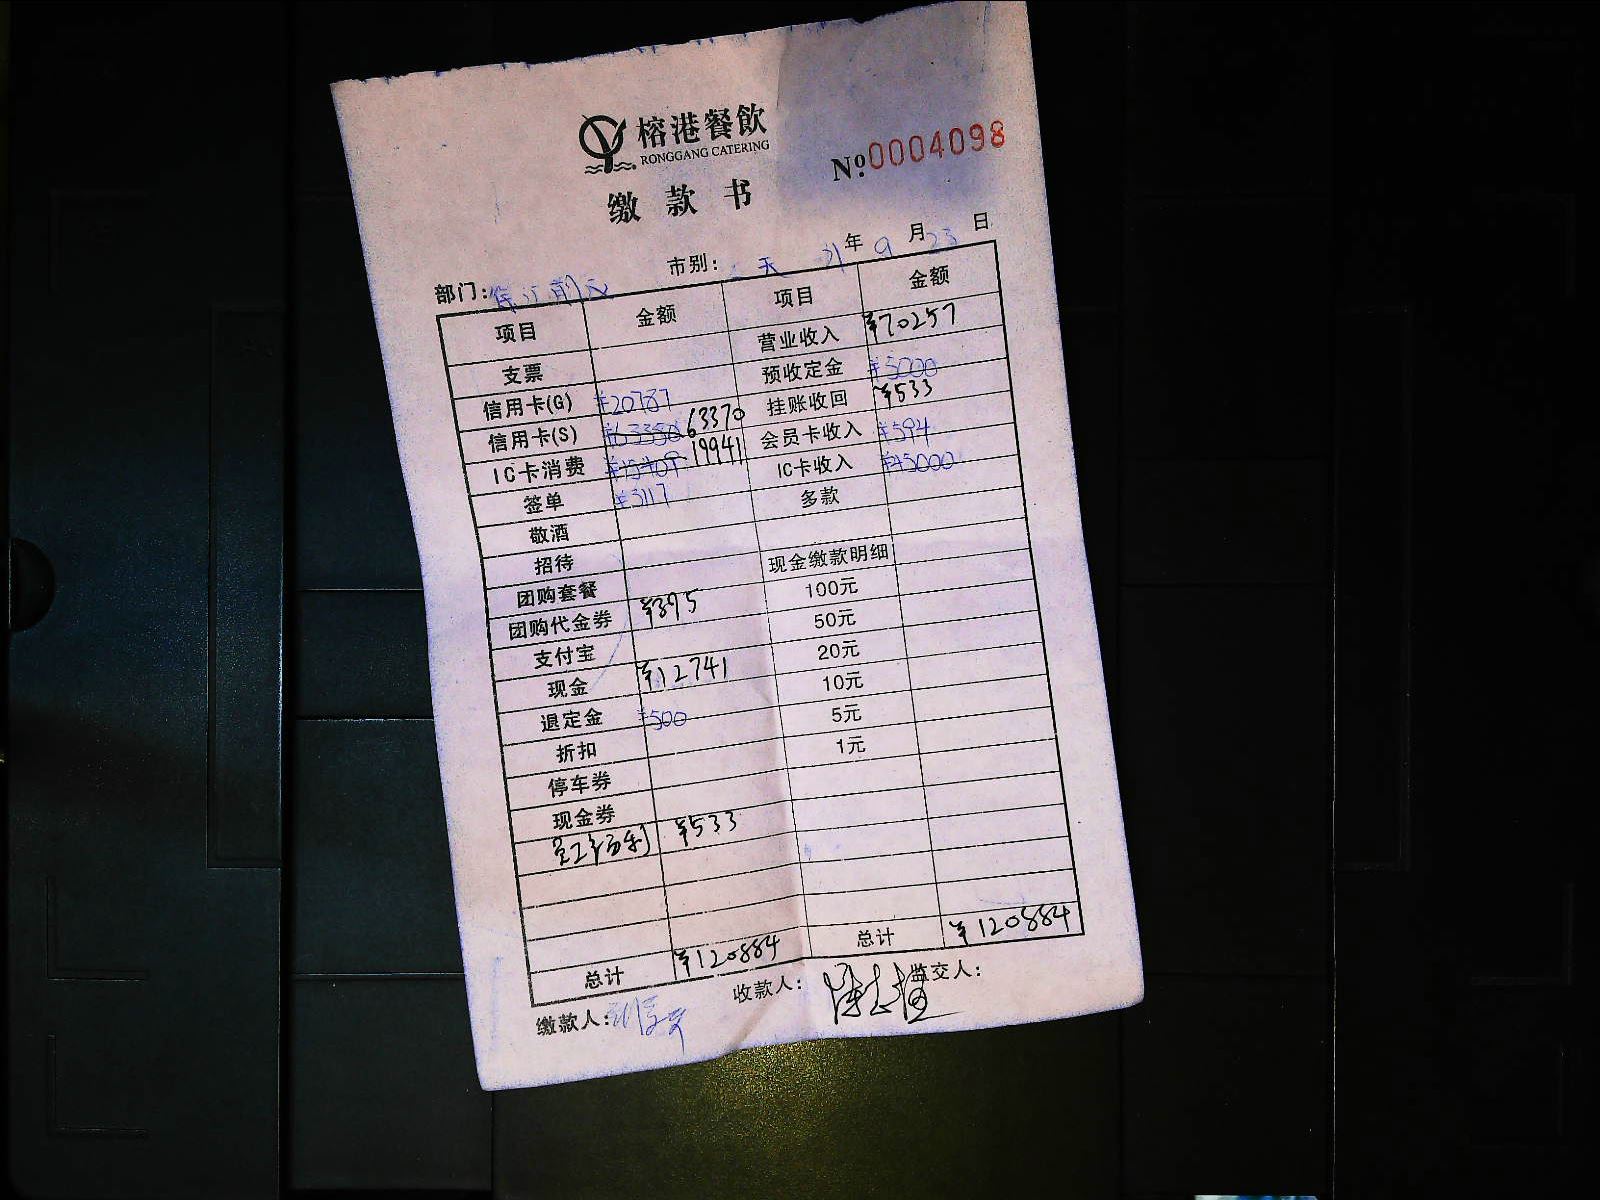 榕港餐飲
RONGGANG CATERING
№0004098
缴款书
部门: 市别: 天 21年9月23日
项目 金额 项目 金额
支票 营业收入 ¥70257
信用卡(G) ¥20787 预收定金 ¥5000
信用卡(S) 63370 挂账收回 ¥533
IC卡消费 19941 会员卡收入 ¥594
签单 ¥3117 IC卡收入 ¥45000
敬酒 多款
招待
团购套餐 现金缴款明细
团购代金券 ¥395 100元
支付宝 50元
现金 ¥12741 20元
退定金 ¥500 10元
折扣 5元
停车券 1元
现金券
员工福利 ¥533
总计 ¥120884 总计 ¥120884
缴款人: 收款人: 监交人: